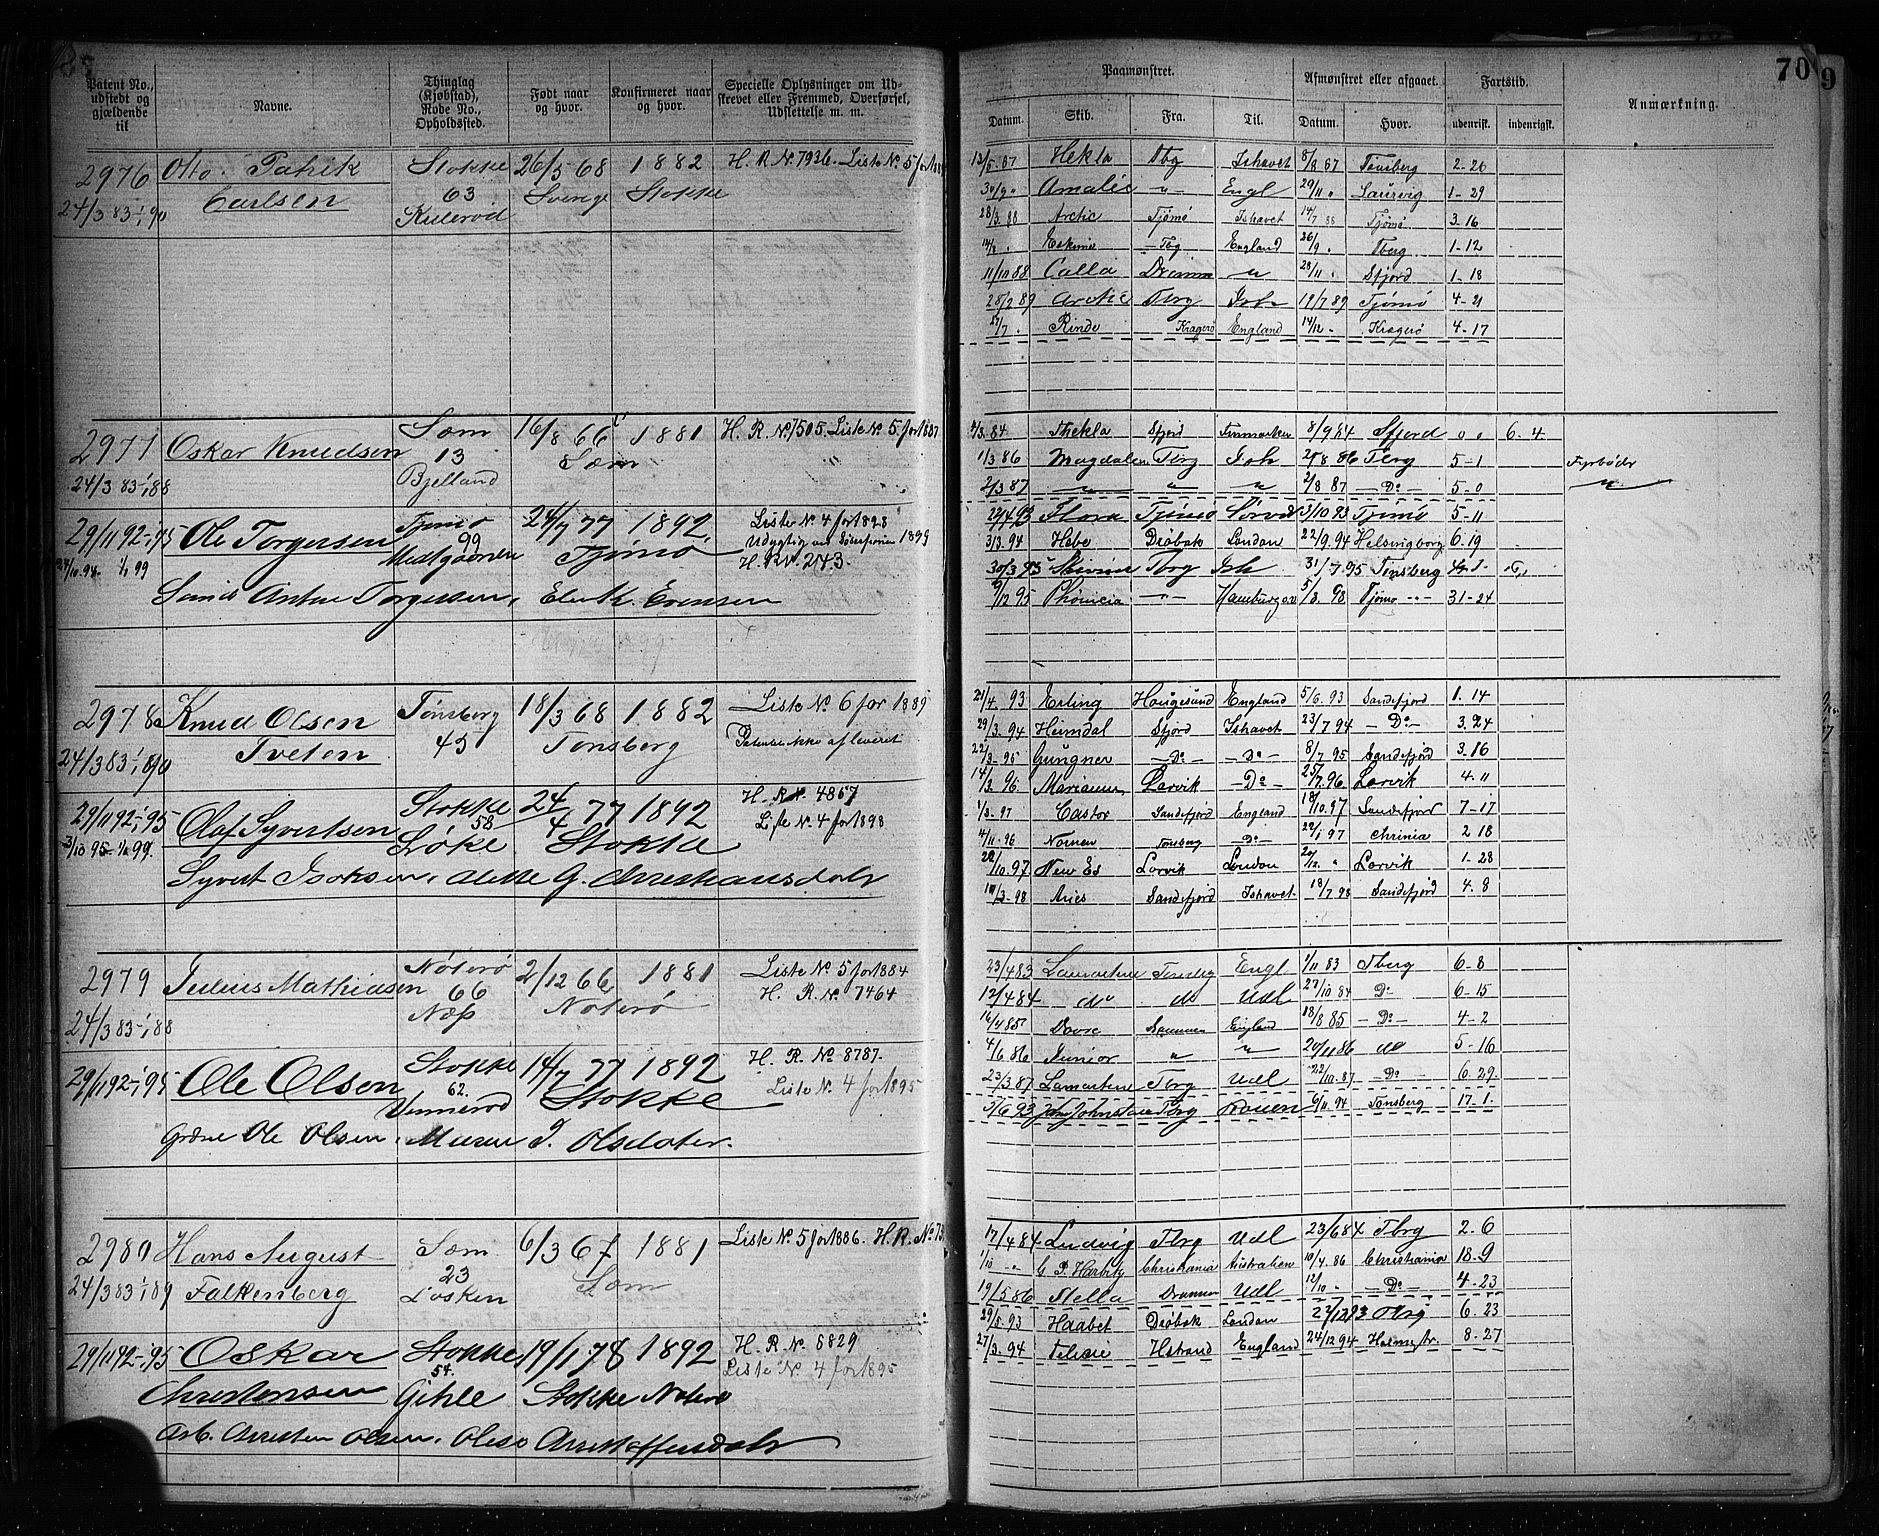 70
9
Patent No., udstedt og gjældende til
Navne.
Thinglag (Kjøbstad), Rode No., Opholdssted.
Født naar og hvor.
Konfirmeret naar og hvor.
Specielle Oplysninger om Udskrevet eller Fremmed, Overførsel, Udslettelse m. m.
Paamønstret.
Afmønstret eller afgaaet.
Fartstid.
Anmærkning.
Datum. Skib. Fra. Til. Datum. Hvor. udenrisk. indenrigsk.
2976 Otto Patrik Stokke 26/5 68 1882 H. R. N. 7936. Liste N. 5 for
24/3 83-1/1 90 Carlsen 63 Sverige Stokke
13/5 87 Hekla Tbg Ishavet 8/8 87 Tønsberg 2-26
30/9 " Amalie " Engl 29/11 " Laurvig 1-29
28/3 88 Arctic Tjømø Ishavet 14/7 88 Tjømø 3-16
14/8 " Tbg England 26/9 " Tberg 1-12
11/10 88 Calla " Sfjord 1-18
28/2 89 Arctic Tbrg Ish 19/7 89 Tjømø 4-21
Rinde Kragerø England 14/12 " Kragerø 4-17
2977 Oskar Knudsen Sæm 16/8 66 1881 H. R. N. 7505. Liste N. 5 for 1887
24/3 83-1/1 88 13 Bjelland Sæm
Thekla Sfjord Finmarken 8/9 84 Sfjord 0 0 6-4
1/3 86 Magdalen Tbrg Ish 2/8 86 Tbrg 5-1 Fyrbøder
2/3 87 " " " 2/8 87 Do 5-0 "
29/11 92-1/1 95 Ole Torgersen Tjømø 24/7 77 1892 Liste N. 4 for 1898
24/10 94-1/1 99 99 Tjømø
H. R. N. 243.
Torgersen, Evensen
Flora Tjømø 3/10 93 Tjømø 5-11
3/3 94 Hebe Drøbak London 22/9 94 Helsingborg 6-19
30/3 95 Tbrg Ish 31/7 95 Tønsberg
9/12 95 Phønicia " 5/8 98 Tjømø 31-24
2978 Knud Olsen Tønsberg 18/3 68 1882 Liste N. 6 for 1889
24/3 83-1/1 90 Tveten 45 Tønsberg Patentet ikke afleveret
21/4 93 Erling Haugesund England 5/6 93 Sandefjord 1.14
29/3 94 Heimdal Sfjord Ishavet 23/7 94 Do 3.24
22/3 95 Gungner Do Do 8/7 95 Sandefjord 3.16
14/3 96 Mariann Larvik Do 25/7 96 Larvik 4-11
29/11 92-1/1 95 Olaf Syvertsen Stokke 24/4 77 1892 H. R. N. 4867
3/10 95-1/1 99. 58 Løke Stokke Liste N. 4 for 1898
Syvert Isaksen,
1/3 97 Castor Sandefjord England 18/10 97 Sandefjord 7-17
4/11 96 Nornen Tønsberg Do 22/1 97 Chrinia 2 18
22/10 97 New Es Larvik London Larvik 1-28
Aries Sandefjord Ishavet 18/7 98 Sandefjord 4.8
2979 Julius Mathiasen Nøterø 2/12 66 1881 Liste N. 5 for 1884
24/3 83-1/1 88 66 Næs Nøterø H. R. N. 7464
23/4 83 Tønsberg Engl 1/11 83 Tberg 6-8
12/4 84 do do Udl 27/10 84 Do 6-15
16/4 85 Dovre Drammen England 18/8 85 Do 4-2
4/6 86 Junior " " 20/11 86 5-16
23/3 87 Lamartine Tbrg Udl 22/10 87 Do 6.29
29/11 92-1/1 95 Ole Olsen Stokke 14/7 77 1892 H. R. No 8787.
62. Unnerød Stokke Liste N. 4 for 1895
Ole Olsen, Olsdater.
5/6 93 Tbrg Rouen 6/11 94 Tønsberg 17-1
2980 Hans August Sæm 6/3 67 1881 Liste N. 5 for 1886. H. R. No
24/3 83-1/1 89 Falkenberg 23 Sæm
17/4 84 Ludvig Tbrg Udl 23/6 84 Tbrg 2-6
1/10 " Christiania Australien 10/4 86 Christiania 18-9
19/5 86 Stella Drammen Udl 12/10 " Do 4-23
29/11 92-1/1 95 Oskar Stokke 19/1 78 1892 H. R. N. 6829
Christensen 54. Gihle Stokke Nøterø Liste N. 4 for 1895
Arb. Christen Olsen,
29/5 93 Haabet Drøbak London 23/12 93 Tbrg 6.23
27/3 94 Hstrand England 24/12 94 Holmestr. 8-27